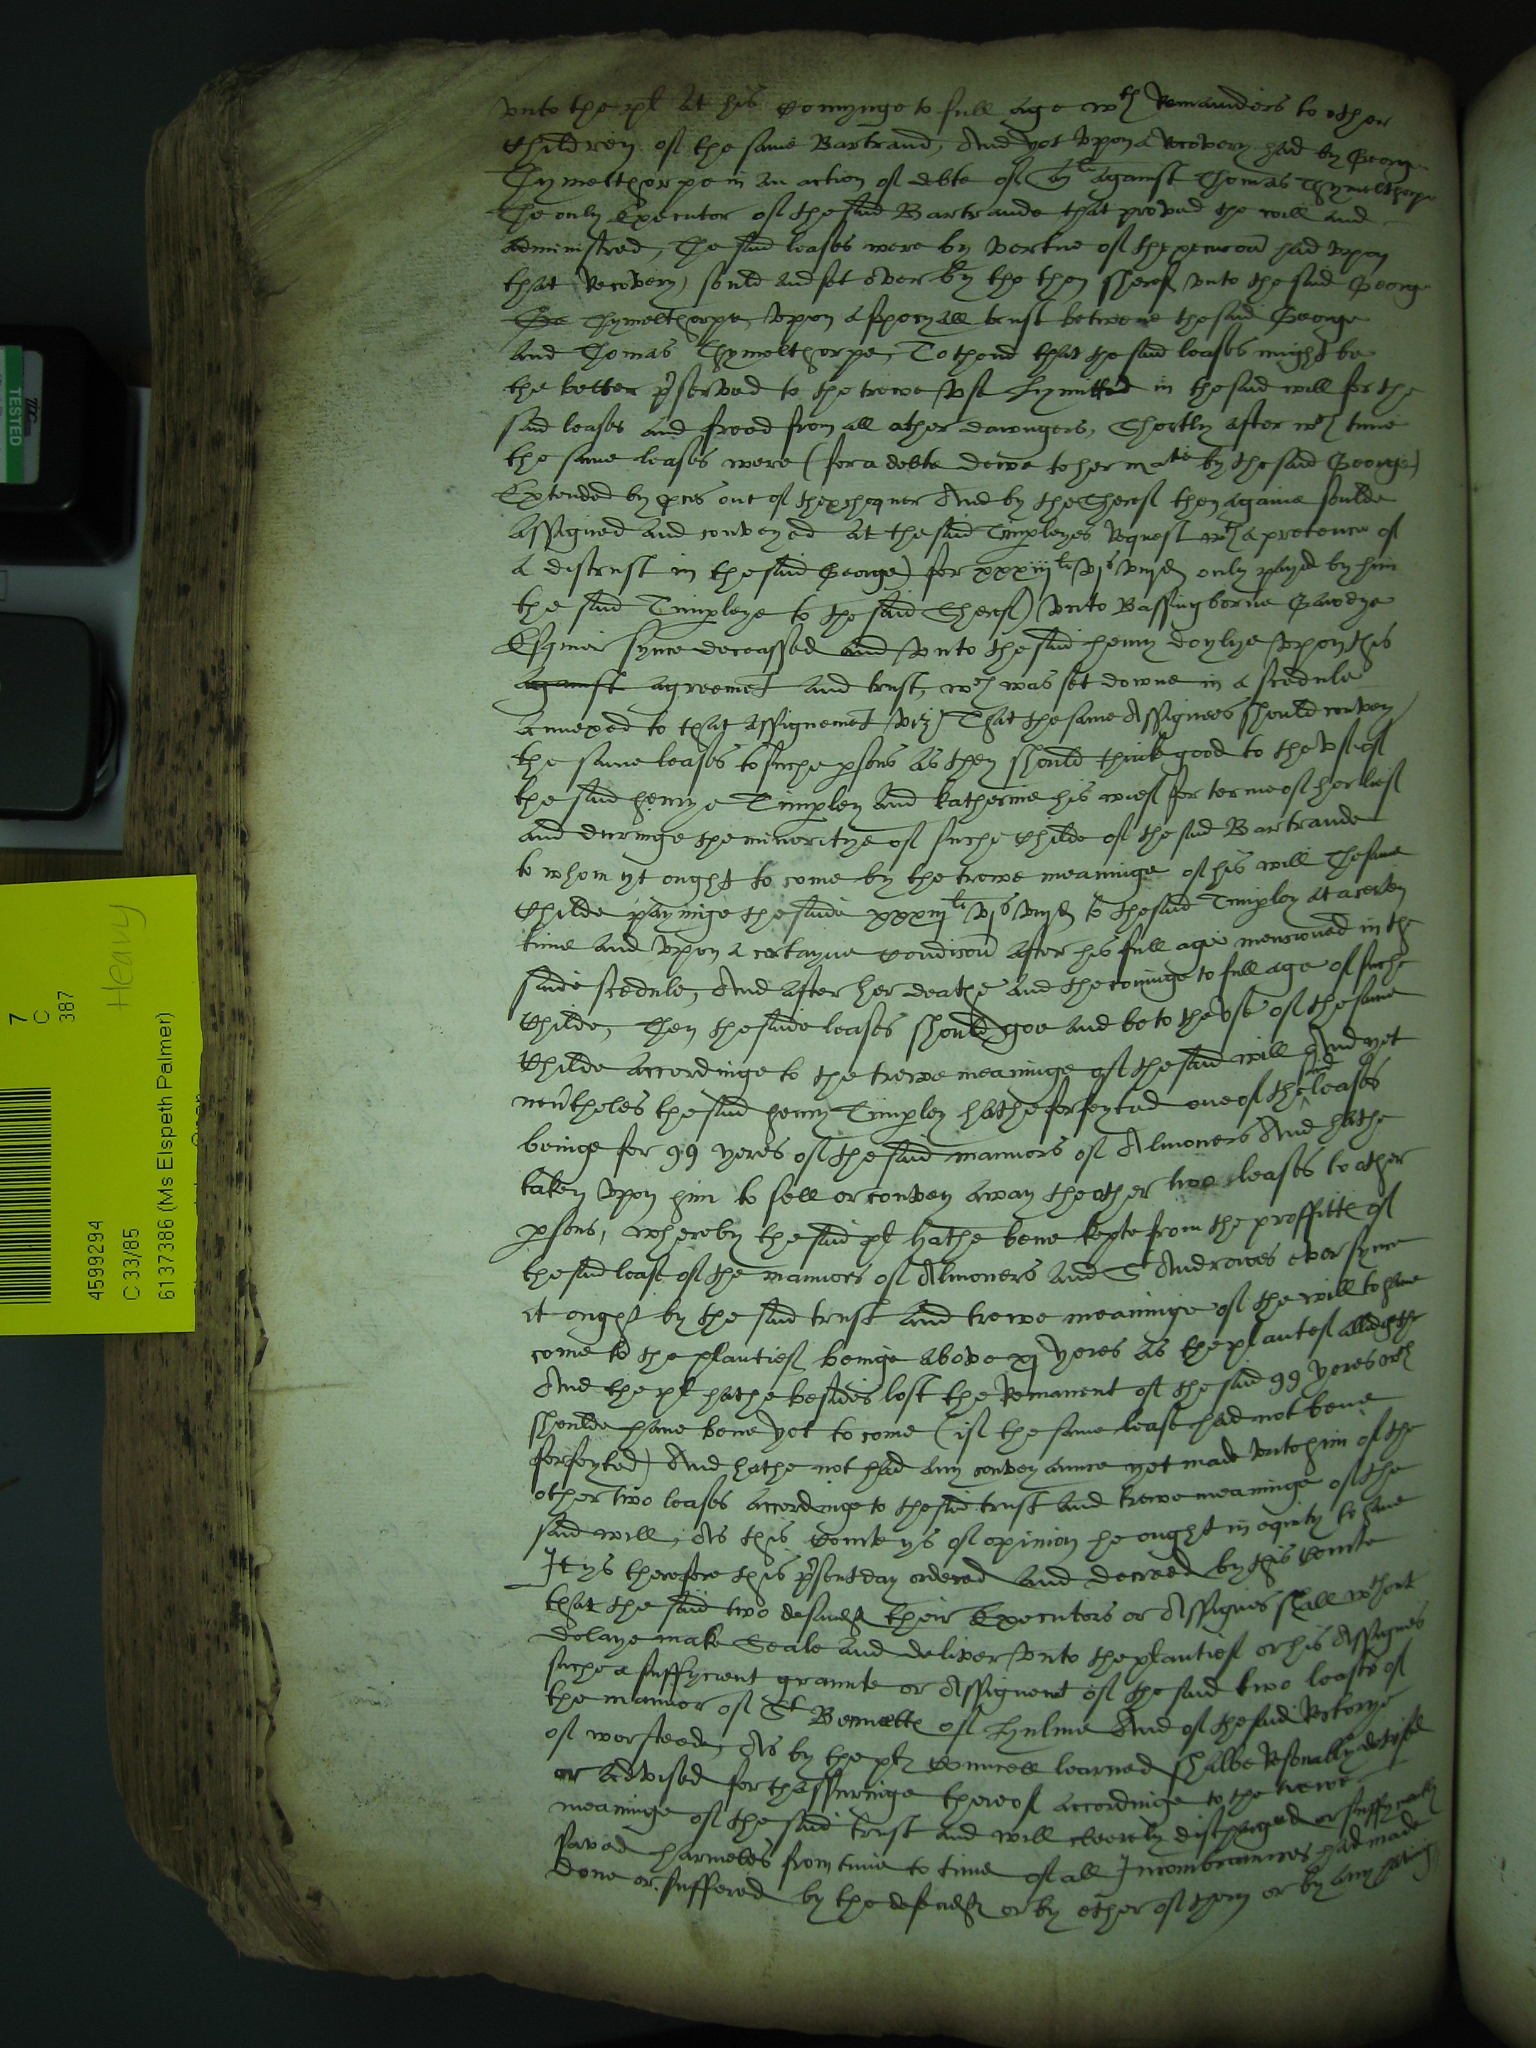 vnto the pl at his comynge to full age wth Remainders to other
children of the same Bartrand, And yet vpon a Recovery had by George
Thymelthorpe in an action of debte of against Thomas Thymelthorpe
The only Executor of the said Bartrande that proved the will and
administred, The said leases were by vertue of thexecucon had vpon
that Recovery sould and set over by the then Sheref vnto the said George
The Thymelthorpe, vpon a specyall trust betwene the said George
and Thomas Thymelthorpe, To thend that the said leases might be
the better pserved to the trewe vse Lymitted in the said will for the
said leases and freed from all other daungers, Shortly after wch time
the same leases were (for a debte dewe to her matie by the said George)
Extended by pces out of thexchequer And by the Sheref then againe soulde
Assigned and conveyed at the said Timpleyes Request wth a pretence of
a distrust in the said George) for xxxiijli vjs viijd only payed by him
the said Timpleye to the said Sheref) vnto Bassingborne Gawdye
Esquier synce deceassed and vnto the said henry doylye vpon this
against agreemet and trust, wch was set downe in a scedule
annexed to that assignemet viz) That the same Assignees should convey
the same leases to suche psons as they should think good to the vse of
the said henrye Timpley and katherine his wief for terme of her lief
and duringe the minoritye of suche childe of the said Bartrande
to whom yt ought to come by the trewe meaninge of his will The same
childe payinge the saide xxxiijli vjs viijd to the said Timpley at a certen
time and vpon a certayne condicon after his full age mencioned in the
saide scedule, And after her deathe and the cominge to full age of suche
childe, Then the saide leases should goe and be to the vse of the same
childe accordinge to the trewe meaninge of the said will And yet
nevtheles the said henry Timpley hathe forfeyted one of the said leases
beinge for 99 yeres of the said mannors of Almoners And hathe
taken vpon him to sell or convey away the other two leases to other
psons, whereby the said pl hathe bene kepte from the proffitte of
the said lease of the mannors of Almoners and St Androwes ever synce
it ought by the said trust and trewe meaninge of the will to have
come to the plantief beinge above xj yeres as the plantef alledgethe
And the pl hathe besides lost the Remanent of the said 99 yeres wch
shoulde have bene yet to come (if the same lease had not bene
forfeyted) And hathe not had any conveyannce yet made vnto him of the
other two leases accordinge to the said trust and trewe meaninge of the
said will, As this Courte ys of opinion he ought in equity to have
It ys therefore this psent day ordered and decreed by this Courte
that the said two defendts their Executors or Assignes shall wthout
delaye make Seale and deliver vnto the plantief or his Assignes
suche a suffycient graunte or Assignemt of the said two leases of
the mannor of St Bennetts of Hulme And of the said Rectorye
of worstede, As by the pl Councell learned shalbe Resonablly devised
or advised for thassuringe thereof accordinge to the trewe
meaninge of the said trust and will cleerely discharged or suffyciently
saved harmeles from time to time of all Incombrannces had made
done or suffered by the defendts or by ether of them or by any havinge
TESTED
7
C
387
Heavy
4599294
C 33/85
6137386 (Ms Elspeth Palmer)